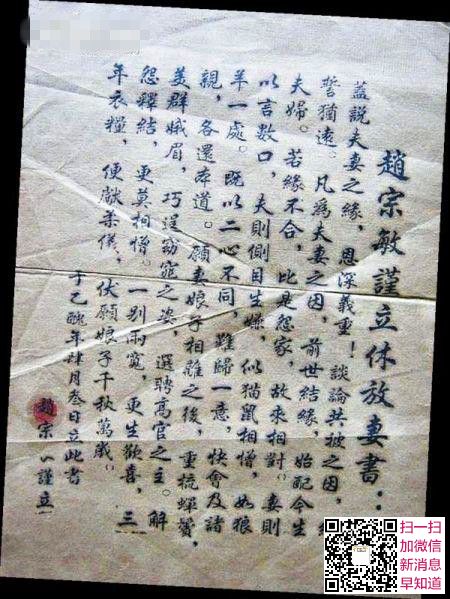 趙宗敏謹立休放妻書：
蓋說夫妻之緣，恩深義重！談論共被之因，
誓猶遠。凡為夫妻之因，前世結緣，始配今生
夫婦。若緣不合，比是怨家，故來相對。妻則
以言數口，夫則側目生嫌，似猫鼠相憎，如狼
羊一處。既以二心不同，難歸一意，快會及諸
親，各還本道。願妻娘子相離之後，重梳蟬鬢，
美群娥眉，巧逞窈窕之姿，選聘高官之主。解
怨釋結，更莫相憎。一別兩寬，更生歡喜，三
年衣糧，便獻柔儀。伏願娘子千秋萬歲。
于乙醜年肆月叁日立此書
趙宗謹立
扫一扫
加微信
新消息
早知道